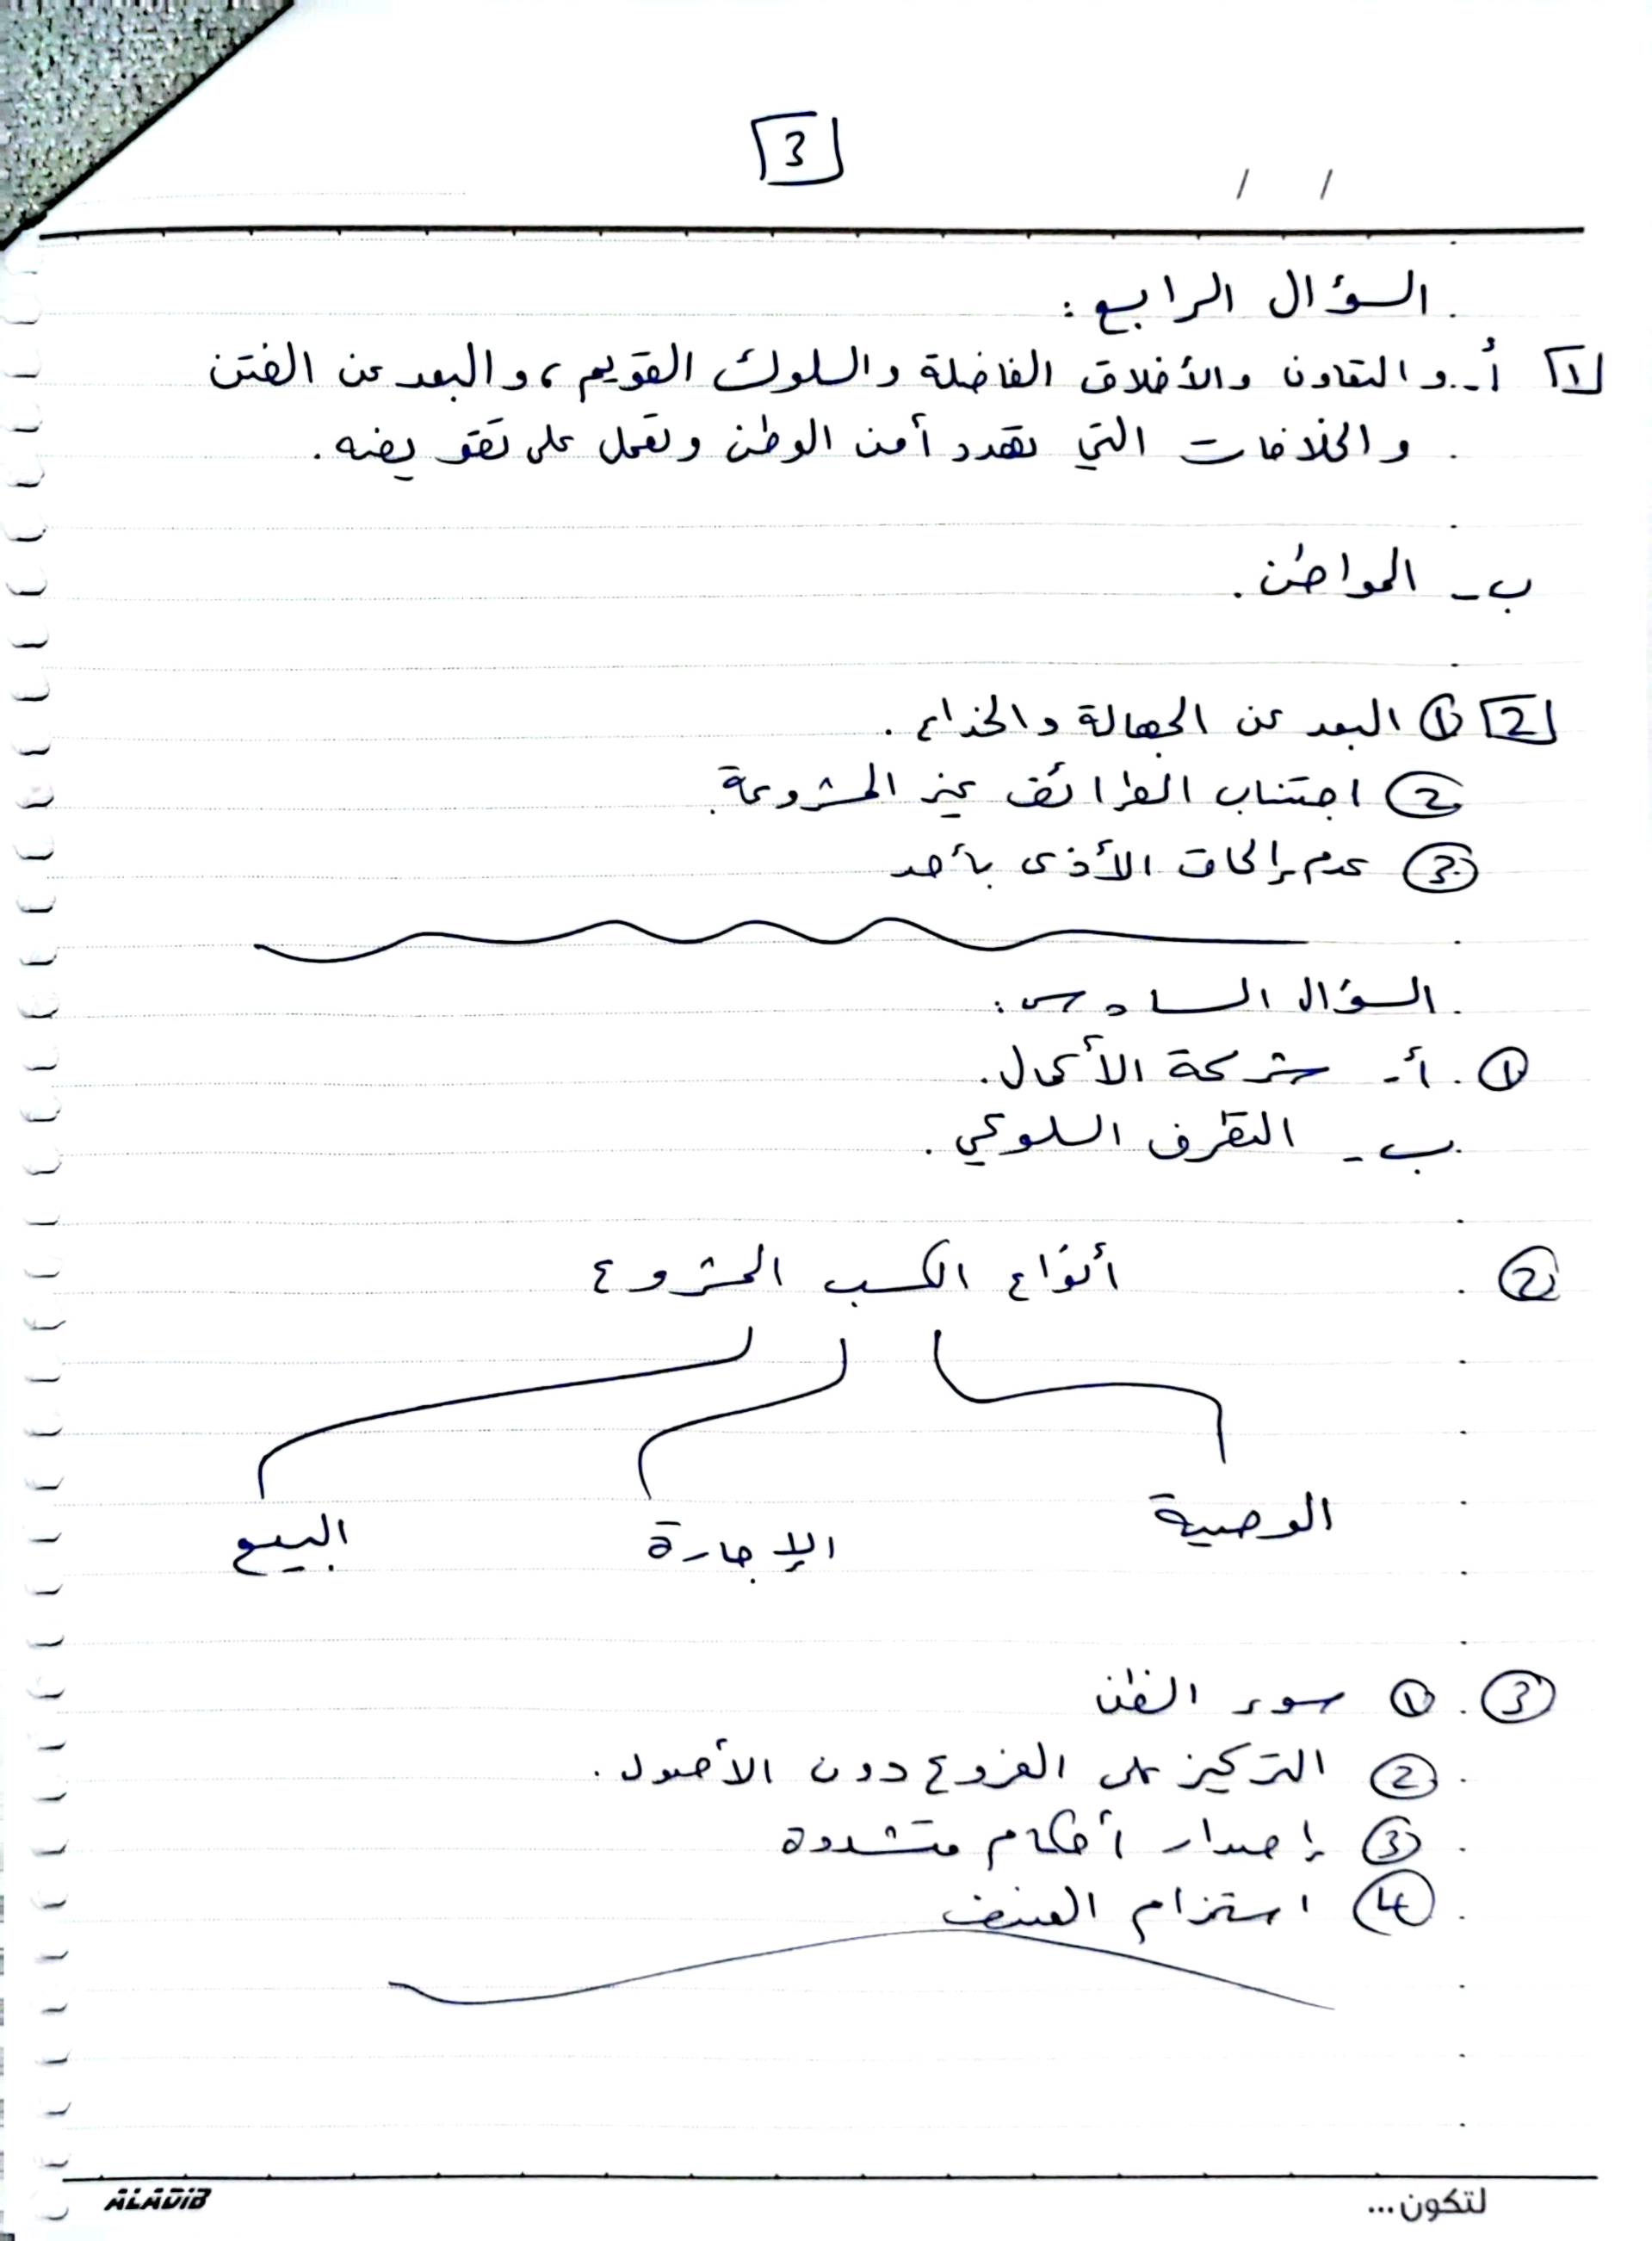 3
/ /
السؤال الرابع :
1 أ - و التعاون والأخلاق الفاضلة والسلوك القويم ، والبعد عن الفتن
والخلافات التي تهدد أمن الوطن وتعمل على تقويضه .
ب - المواطن .
2 ① البعد عن الجهالة والخداع .
② اجتناب الطرائق غير المشروعة .
③ عدم إلحاق الأذى بأحد
السؤال السادس :
① أ - شركة الأعمال .
ب - التطرف السلوكي .
② أنواع الكسب المشروع
الوصية الإجارة البيع
③ ① سوء الظن
② التركيز على الفروع دون الأصول .
③ إصدار أحكام متشددة
④ استخدام العنف
ALADIB لتكون...